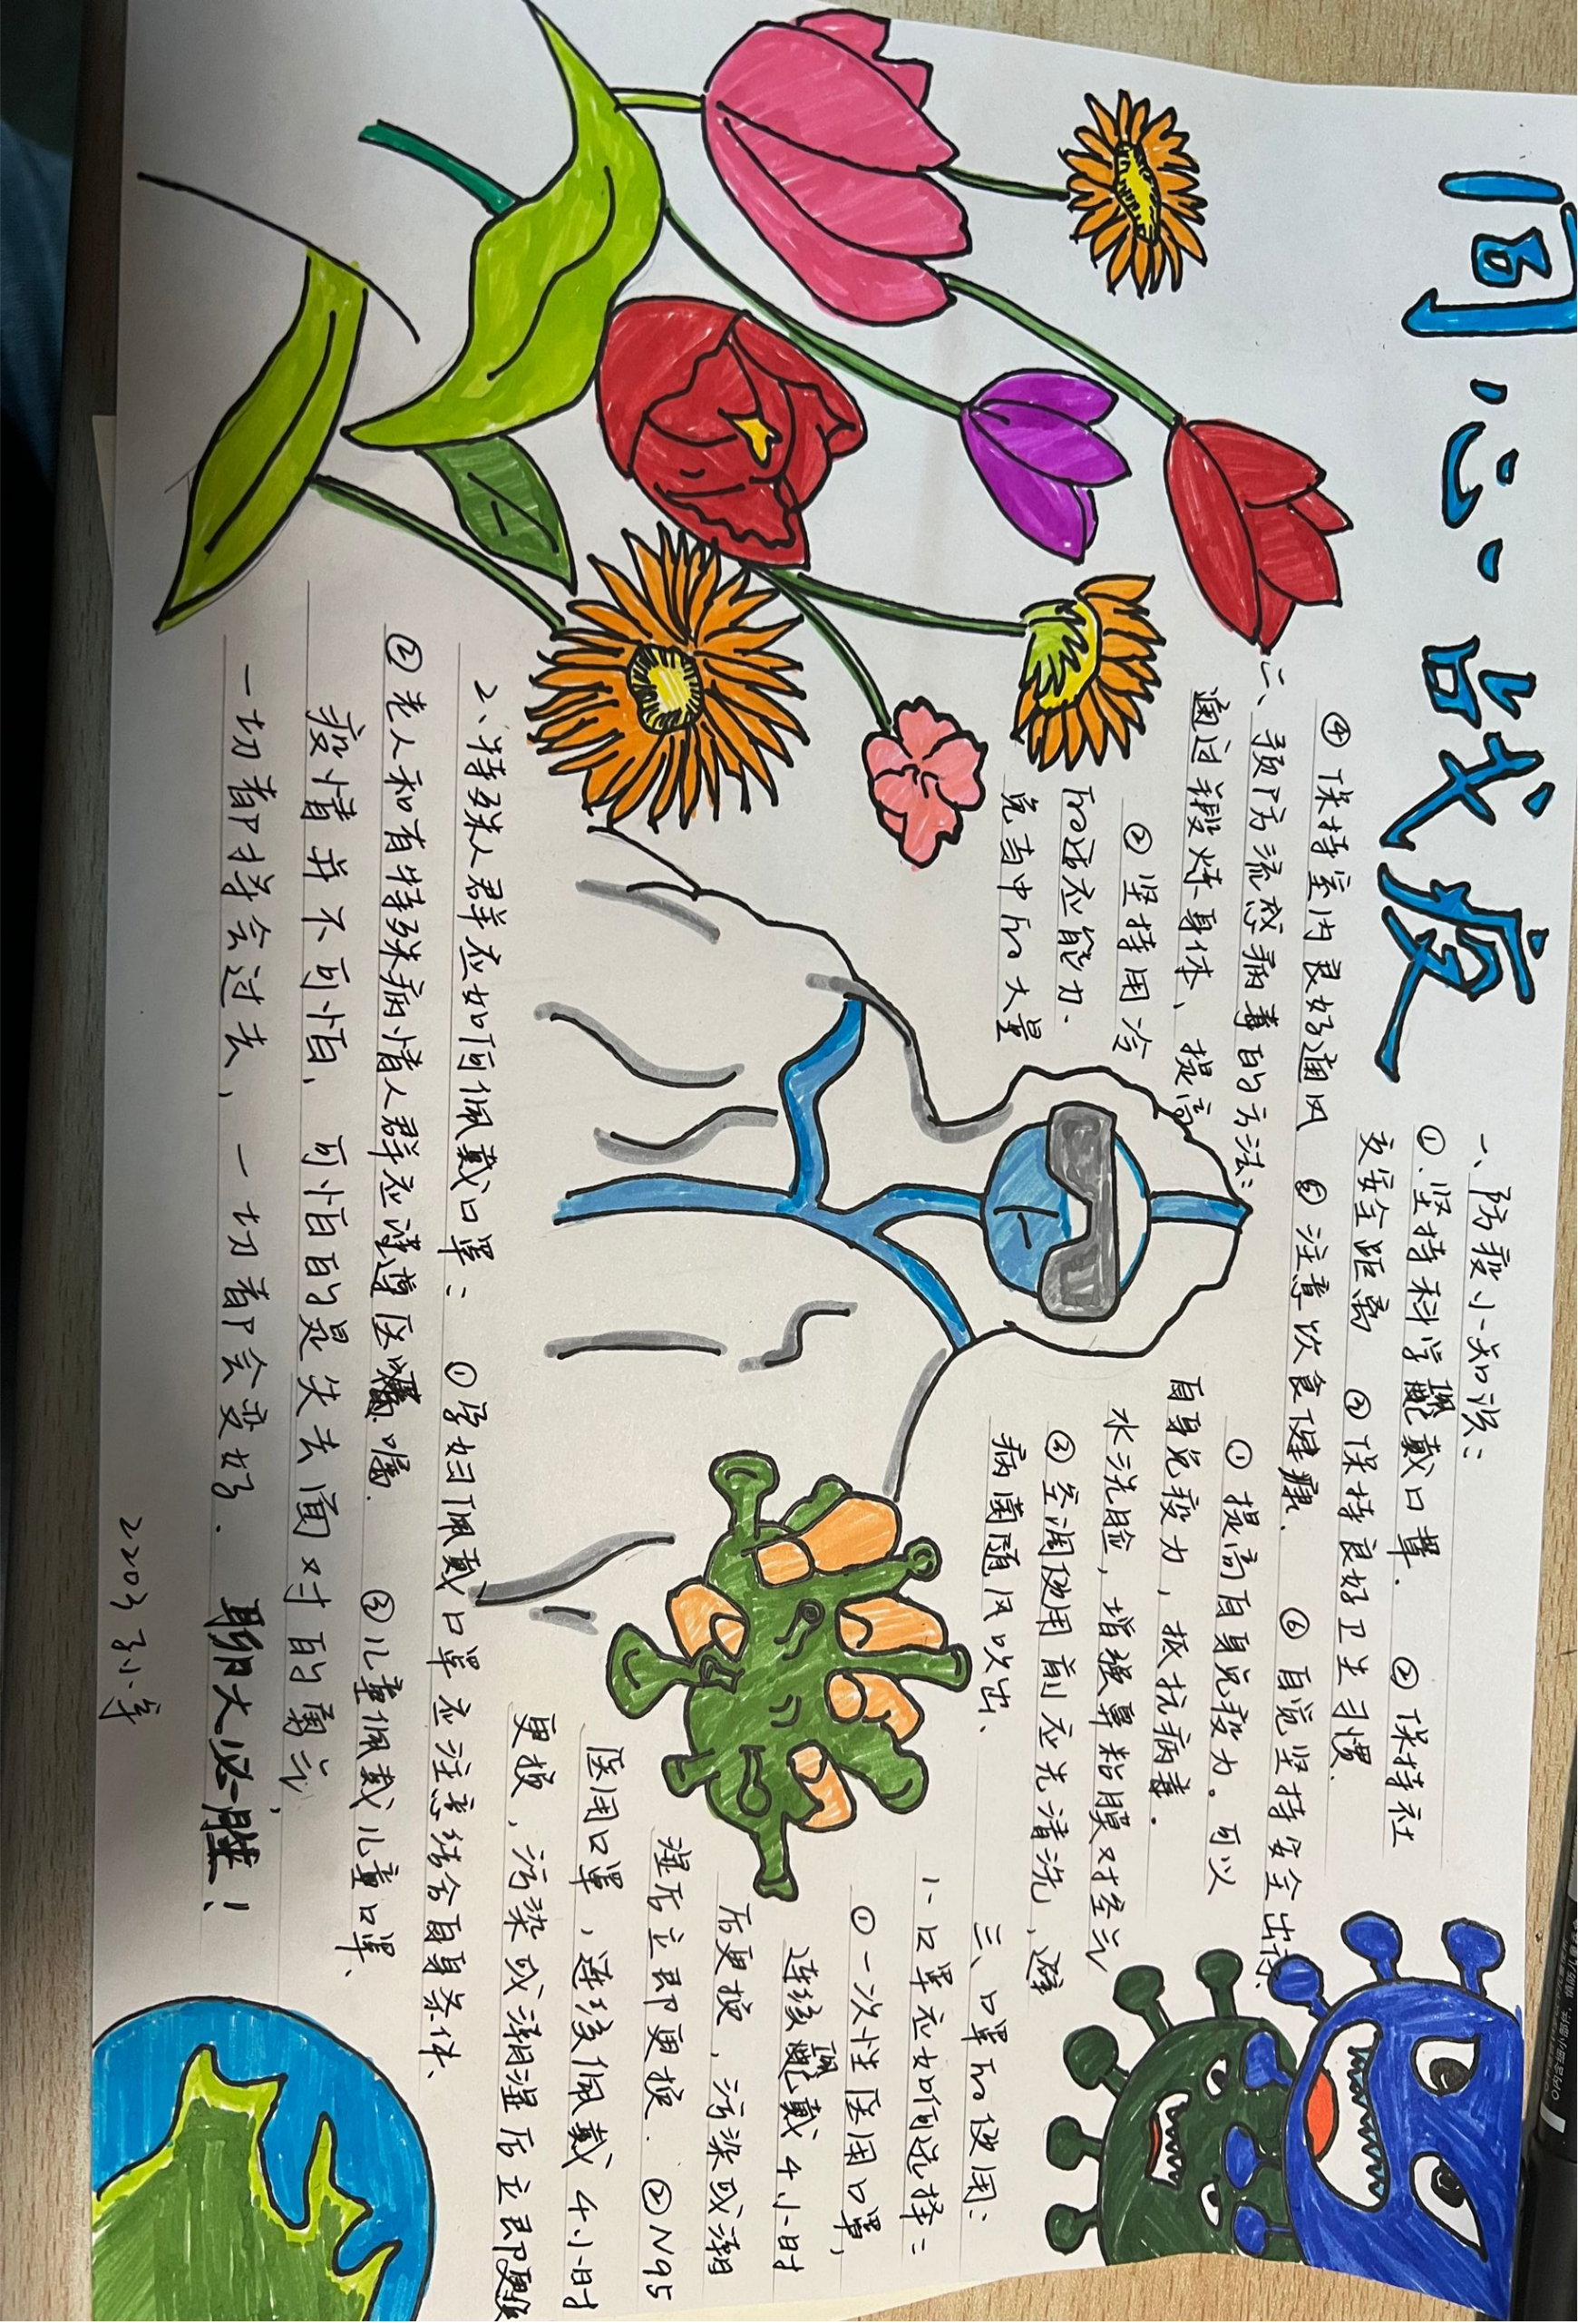 同心战疫
一、防疫小知识：
①.坚持科学佩戴口罩. ②保持社
交安全距离 ③保持良好卫生习惯.
④保持室内良好通风 ⑤注意饮食健康. ⑥自觉坚持安全出行、
二、预防流感病毒的方法： ①提高自身免疫力。可以
通过锻炼身体、提高自身免疫力，抵抗病毒.
②坚持用冷水洗脸，增强鼻粘膜对空气
的适应能力.③空调使用前应先清洗，避
免当中的大量病菌随风吹出、
三、口罩的使用：
1、口罩应如何选择：
①一次性医用口罩，
连续佩戴4小时
后更换，污染或潮
湿后立即更换.②N95
医用口罩，连续佩戴4小时
更换，污染或潮湿后立即更换
2、特殊人群应如何佩戴口罩： ①孕妇佩戴口罩应注意结合自身条件、
②老人和有特殊病情人群应谨遵医嘱. ③儿童佩戴儿童口罩、
疫情并不可怕，可怕的是失去面对的勇气，
一切都将会过去，一切都会变好. 明大必胜！
2203